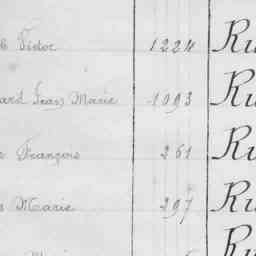 Victor 1224 Ru
Jean Marie 1093 Ru
François 261 Ru
Marie 297 Ru
Ru